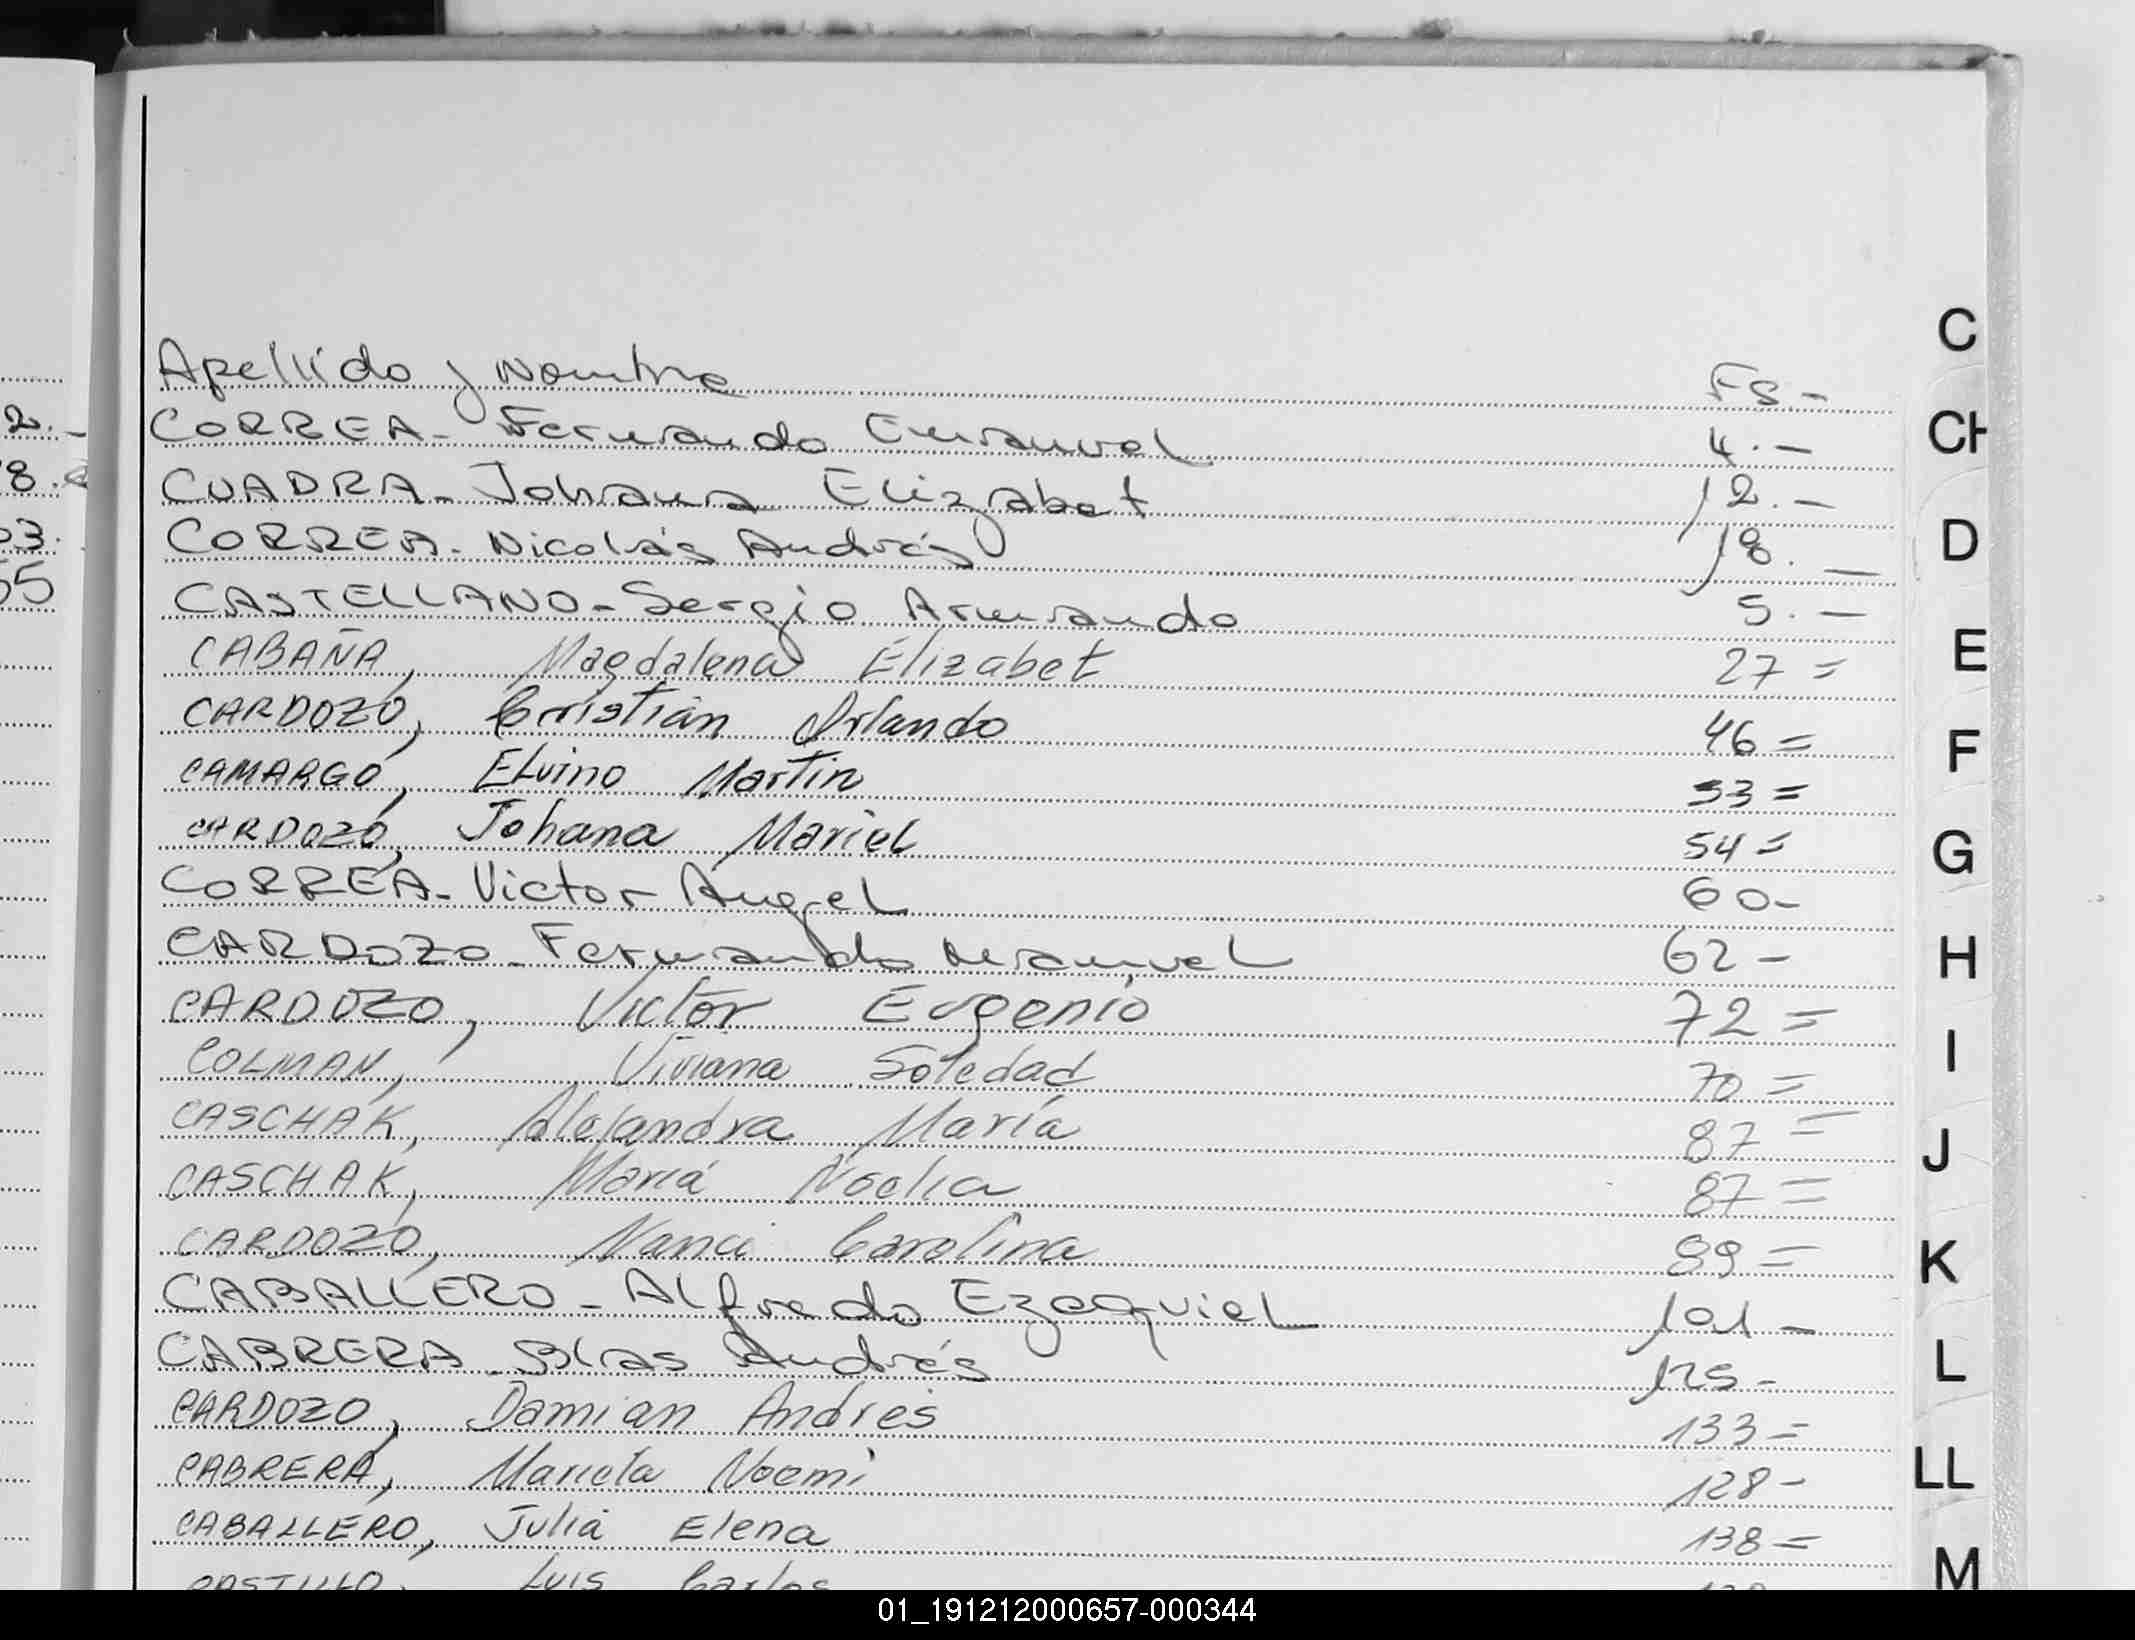 Apellido y Nombre Fs.-
CORREA- Fernando Emanuel 4.-
CUADRA- Johana Elizabet 12.-
CORREA- Nicolás Andrés 18.-
CASTELLANO- Sergio Armando 5.-
CABAÑA, Magdalena Elizabet 27=
CARDOZO, Cristian Orlando 46=
CAMARGO, Elvino Martin 53=
CARDOZO, Johana Mariel 54=
CORREA- Victor Angel 60-
CARDOZO- Fernando Manuel 62-
CARDOZO, Victor Eugenio 72=
COLMAN, Viviana Soledad 70=
CASCHAK, Alejandra María 87=
CASCHAK, María Noelia 87=
CARDOZO, Nanci Carolina 89=
CABALLERO- Alfredo Ezequiel 101-
CABRERA- Blas Andrés 125-
CARDOZO, Damian Andres 133=
CABRERA, Mariela Noemi 128-
CABALLERO, Julia Elena 138=
CASTILLO, Luis Carlos
2.-
8.
03.
55
C
CH
D
E
F
G
H
I
J
K
L
LL
M
01_191212000657-000344